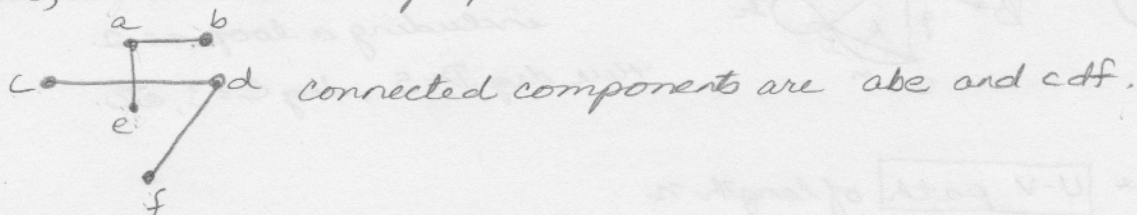 a b
c d connected components are abe and cdf.
e
f